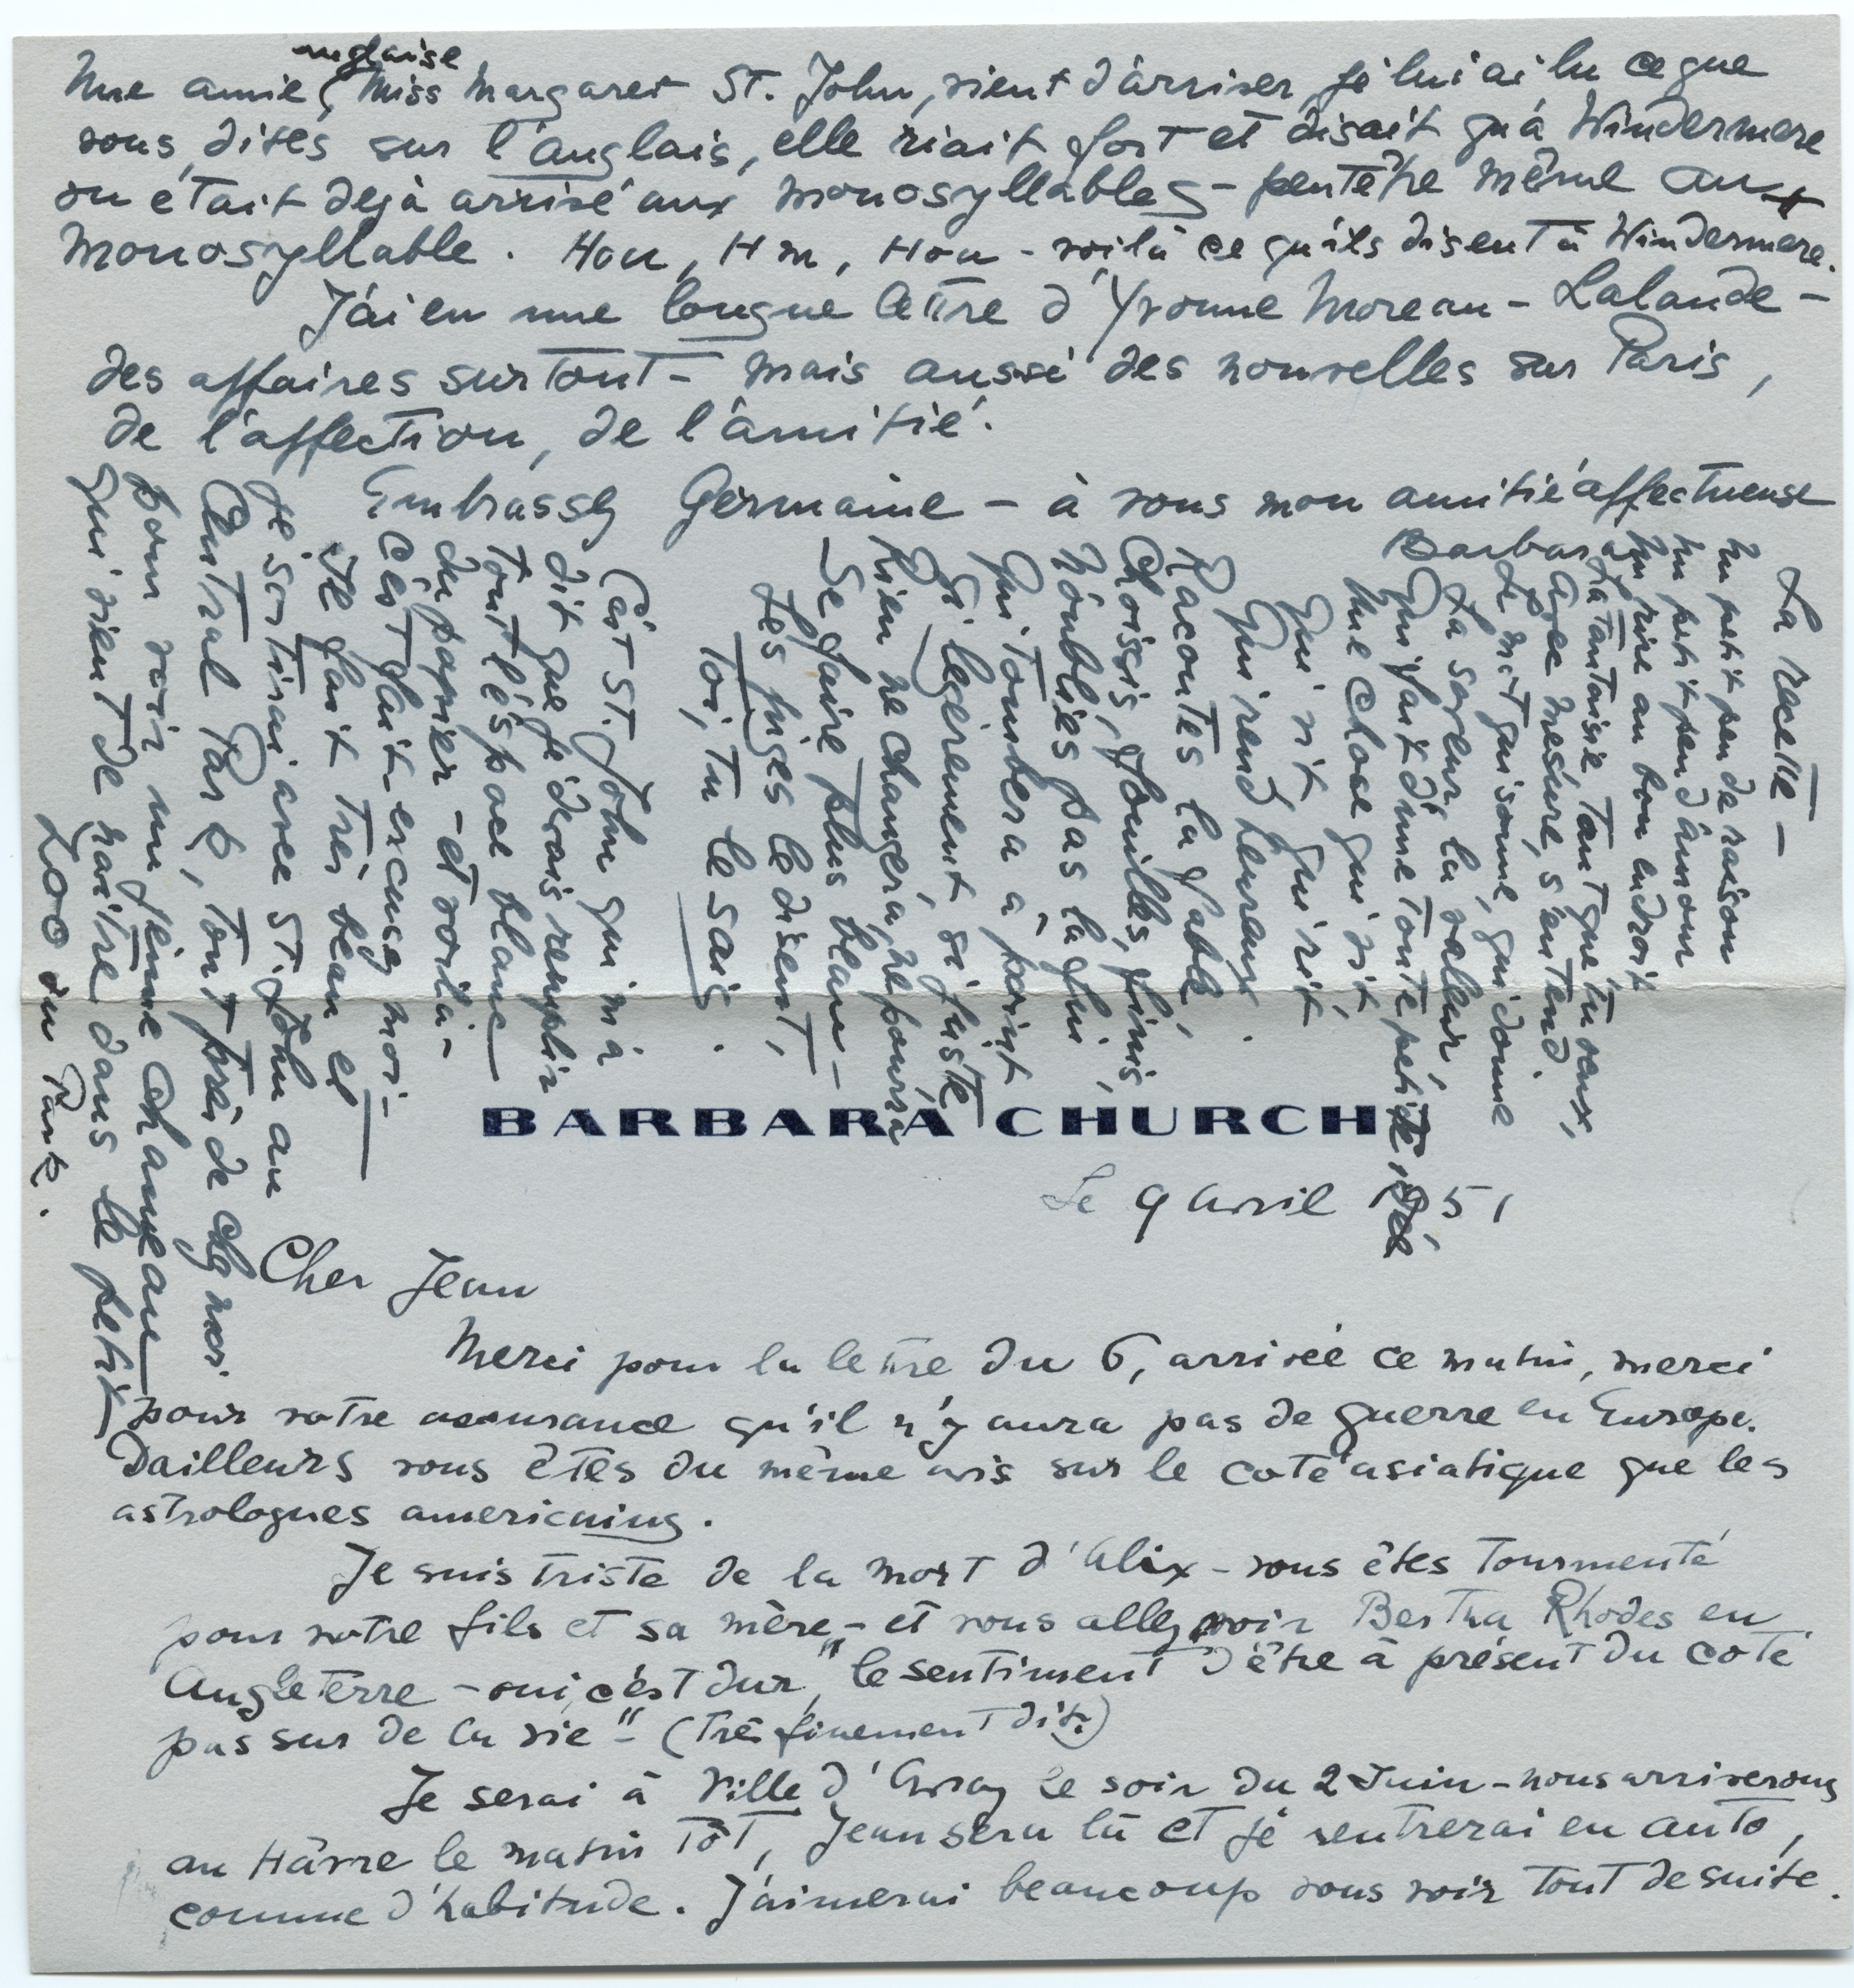 BARBARA CHURCH
Le 9 Avril 1951
Cher Jean
Merci pour la lettre du 6, arrivée ce matin, merci
pour votre assurance qu'il n'y aura pas de guerre en Europe.
Dailleurs vous êtes du même avis sur le coté asiatique que les
astrologues americains.
Je suis triste de la mort d'Alix - vous êtes tourmenté
pour votre fils et sa mère - et vous allez voir Bertha Rhodes en
Angleterre - oui, c'est dur, "le sentiment d'être à présent du coté
pas sur de la vie" - (très finement dit.)
Je serai à Ville d'Avray le soir du 2 Juin - nous arriverons
au Hâvre le matin tôt, Jean sera là et je rentrerai en auto,
comme d'habitude. J'aimerai beaucoup vous voir tout de suite.
Une amie anglaise, Miss Margaret St. John, vient d'arriver, je lui ai lu ce que
vous dites sur l'anglais, elle riait fort et disait qu'à Windermere
on était dejà arrivé aux monosyllables - peutêtre même aux
monosyllable. Hou, Hm, Hou - voilà ce qu'ils disent à Windermere.
J'ai eu une longue lettre d'Yvonne Moreau - Lalande -
des affaires surtout - mais aussi des nouvelles sur Paris,
de l'affection, de l'amitié.
Embrassez Germaine - à vous mon amitié affectueuse
Barbara
La recette -
Un petit peu de raison
Un petit peu d'amour
Un rire au bon endroit
La fantaisie tant que tu veux,
Avec mesure, s'entend.
Le mot qui sonne, qui donne
La saveur, la valeur,
Qui fait d'une toute petite idée
Une chose qui vit
Qui vit, qui rit
Qui rend heureux.
Racontes la fable,
Choisis, fouilles, finis,
N'oublies pas la fin,
Qui tombera à point
Si legèrement, si juste
Rien ne changera, ne pourra
Se faire plus beau -
Les juges le disent,
Toi, tu le sais.
C'est St. John qui m'a
dit que je devais remplir
tout l'éspace blanc
du papier - et voila -
C'est fait excusez moi -
Il fait très beau et
je sortirai avec St. John au
Central Park, tout près de chez moi
pour voir un jeune chameau
qui vient de naitre dans le petit
Zoo du Park.